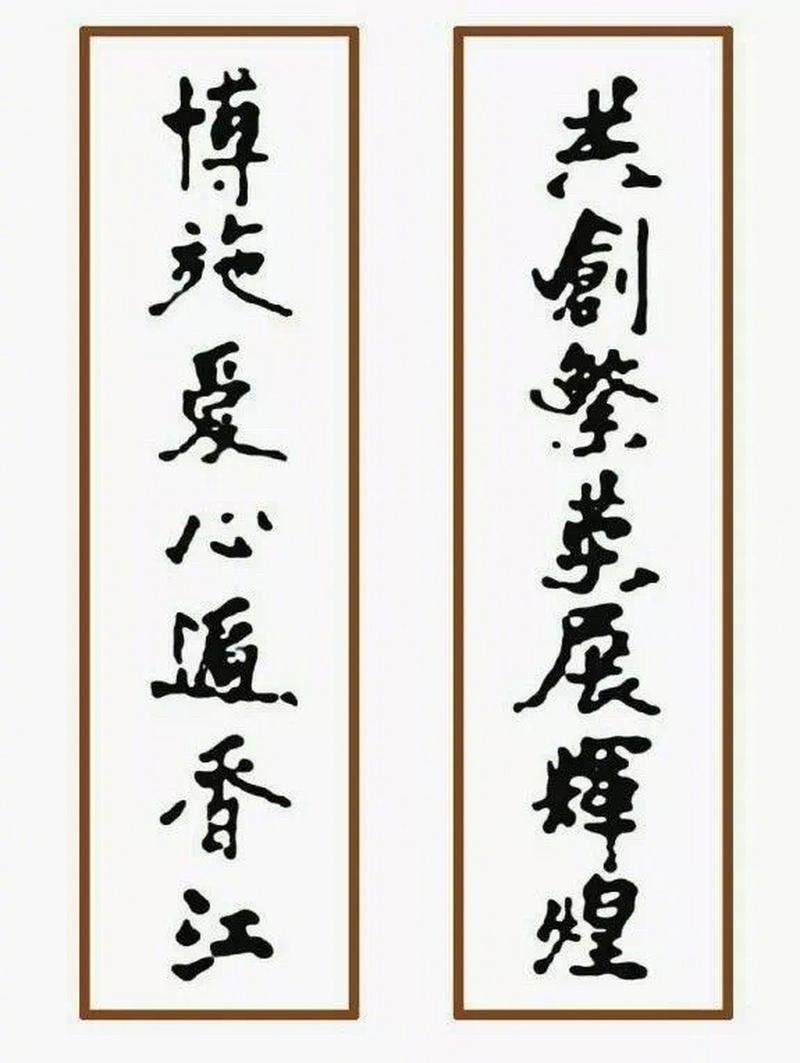 共創繁荣展輝煌
博施爱心遍香江